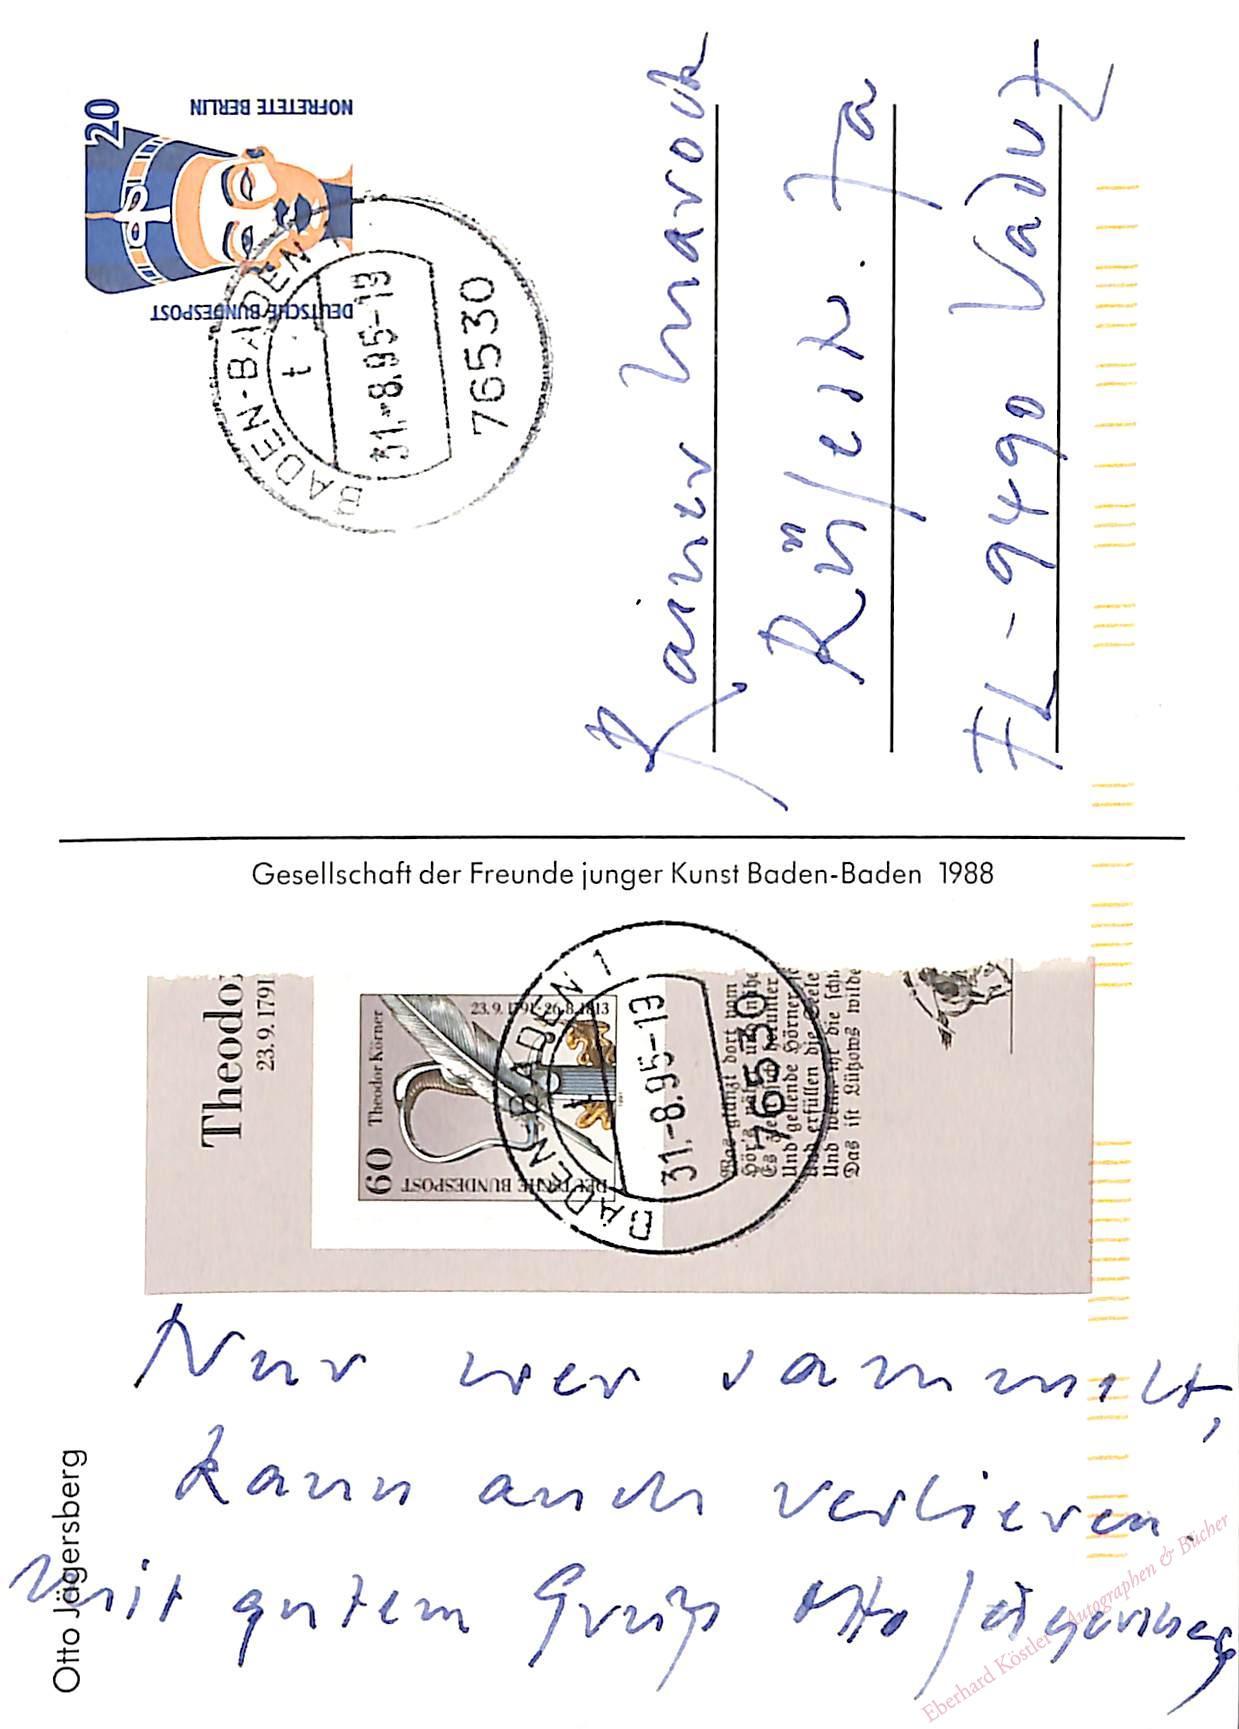 NOFRETETE BERLIN
20
DEUTSCHE BUNDESPOST
BADEN-BADEN
t
31.-8.95-19
76530
Rainer Marock
FL-9490 Vaduz
Gesellschaft der Freunde junger Kunst Baden-Baden 1988
Theodor
23. 9. 1791
60
DEUTSCHE BUNDESPOST
Theodor Körner
23. 9. 1791-26. 8. 1813
BADEN-BADEN 1
31.-8.95-19
76530
Was glänzt dort vom
Hör's
Es
Und gellende Hörner
und erfüllen die Seele
Und wenn ihr die
Das ist Lützows wilde
Nur wer sammelt,
kann auch verlieren.
Mit gutem Gruß Otto Jägersberg
Otto Jägersberg
Eberhard Köstler Autographen & Bücher